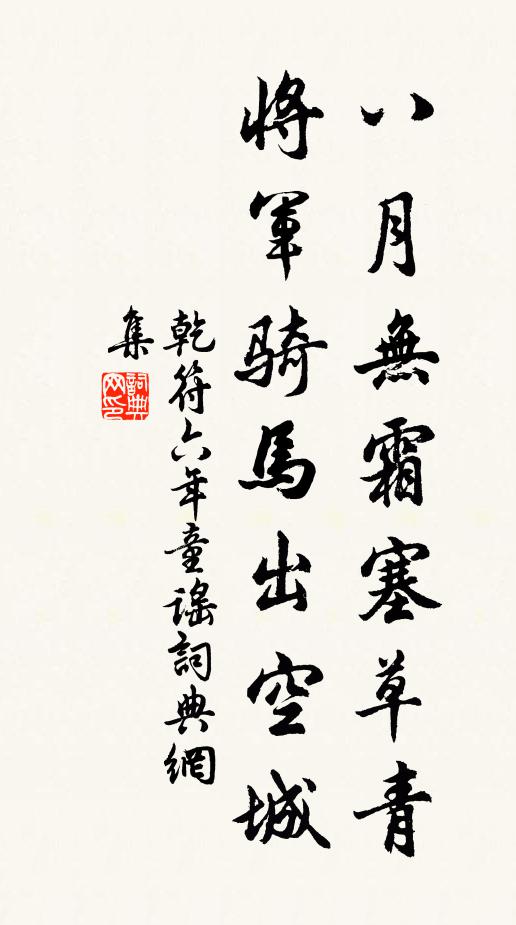 八月無霜塞草青
將軍騎馬出空城
乾符六年童謠詞典網
集
詞典
网印